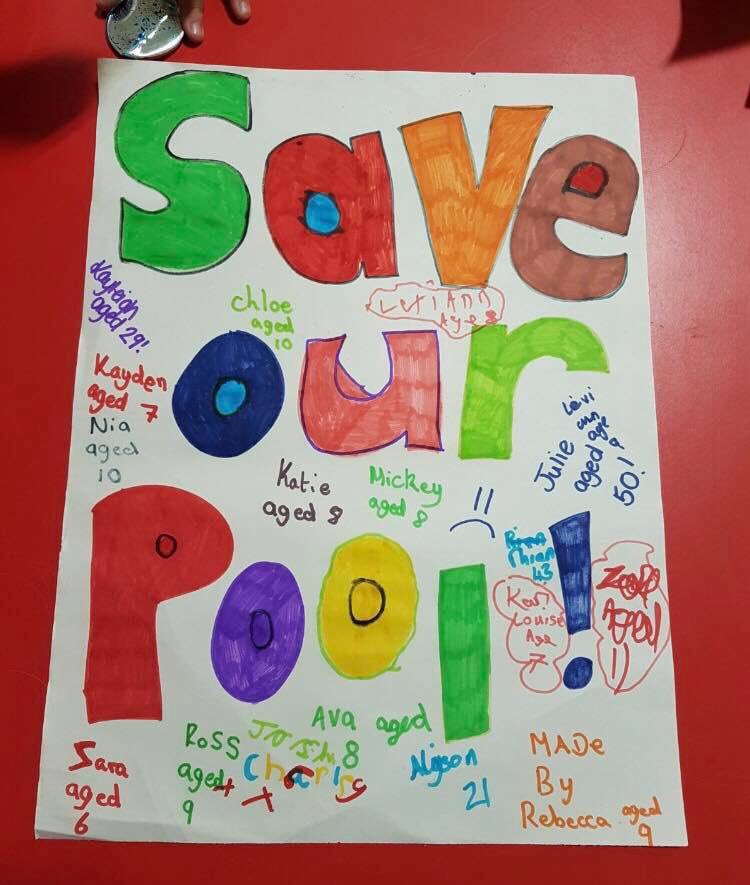 Save
Kayleigh
aged 29!
chloe
aged
10
LexiAnn
Age 8
our
Kayden
aged 7
Nia
aged
10
Katie
aged 8
Mickey
aged 8
Julie
aged
50!
Levi
ann
age
9
Pool!
43
Keri
Louise
Age
7
Aged
11
Sara
aged
6
Ross
aged
9
Ava aged
8
Charlie
Alyson
21
MADe
By
Rebecca aged
9